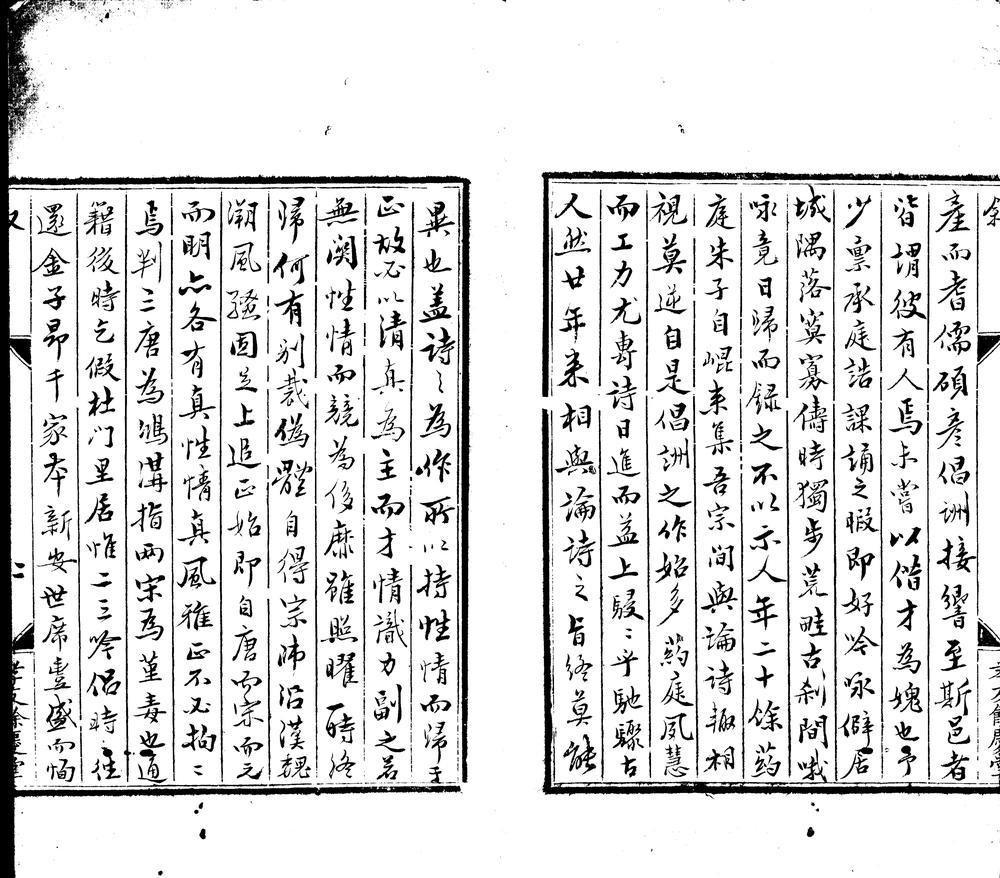 產而耆儒碩彥倡詶接響至斯邑者
皆謂彼有人焉未嘗以偕才為媿也予
少稟承庭誥課誦之暇即好吟咏僻居
城隅落寞寡儔時獨步荒畦古刹間哦
咏竟日歸而録之不以示人年二十餘葯
庭朱子自崐来集吾宗間與論詩輙相
視莫逆自是倡詶之作始多葯庭夙慧
而工力尤專詩日進而益上駸〻乎馳驟古
人然廿年来相與論詩之旨終莫能
異也蓋詩〻為作所以持性情而歸于
正故必以清真為主而才情識力副之若
無関性情而競為侈靡雖照曜一時終
歸何有别裁偽體自得宗沛沿漢魏
溯風騷固足上追正始即自唐而宋而元
而明亦各有真性情真風雅正不必拘〻
焉判三唐為鴻溝指兩宋為堇毒也通
籍後時乞假杜门里居惟二三吟侶時〻往
還金子昂千家本新安世席豊盛而恂